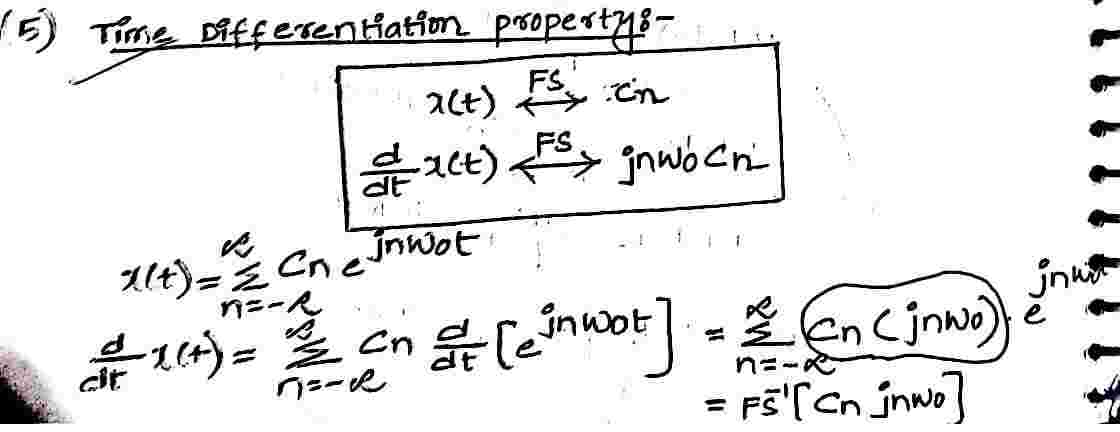 (5) Time Differentiation property:-
x(t) <-FS-> Cn
d/dt x(t) <-FS-> jnω₀ Cn
x(t) = ∑_{n=-∞}^{∞} Cn e^{jnω₀t}
d/dt x(t) = ∑_{n=-∞}^{∞} Cn d/dt [e^{jnω₀t}] = ∑_{n=-∞}^{∞} Cn (jnω₀) . e^{jnω₀
= FS⁻¹ [Cn jnω₀]